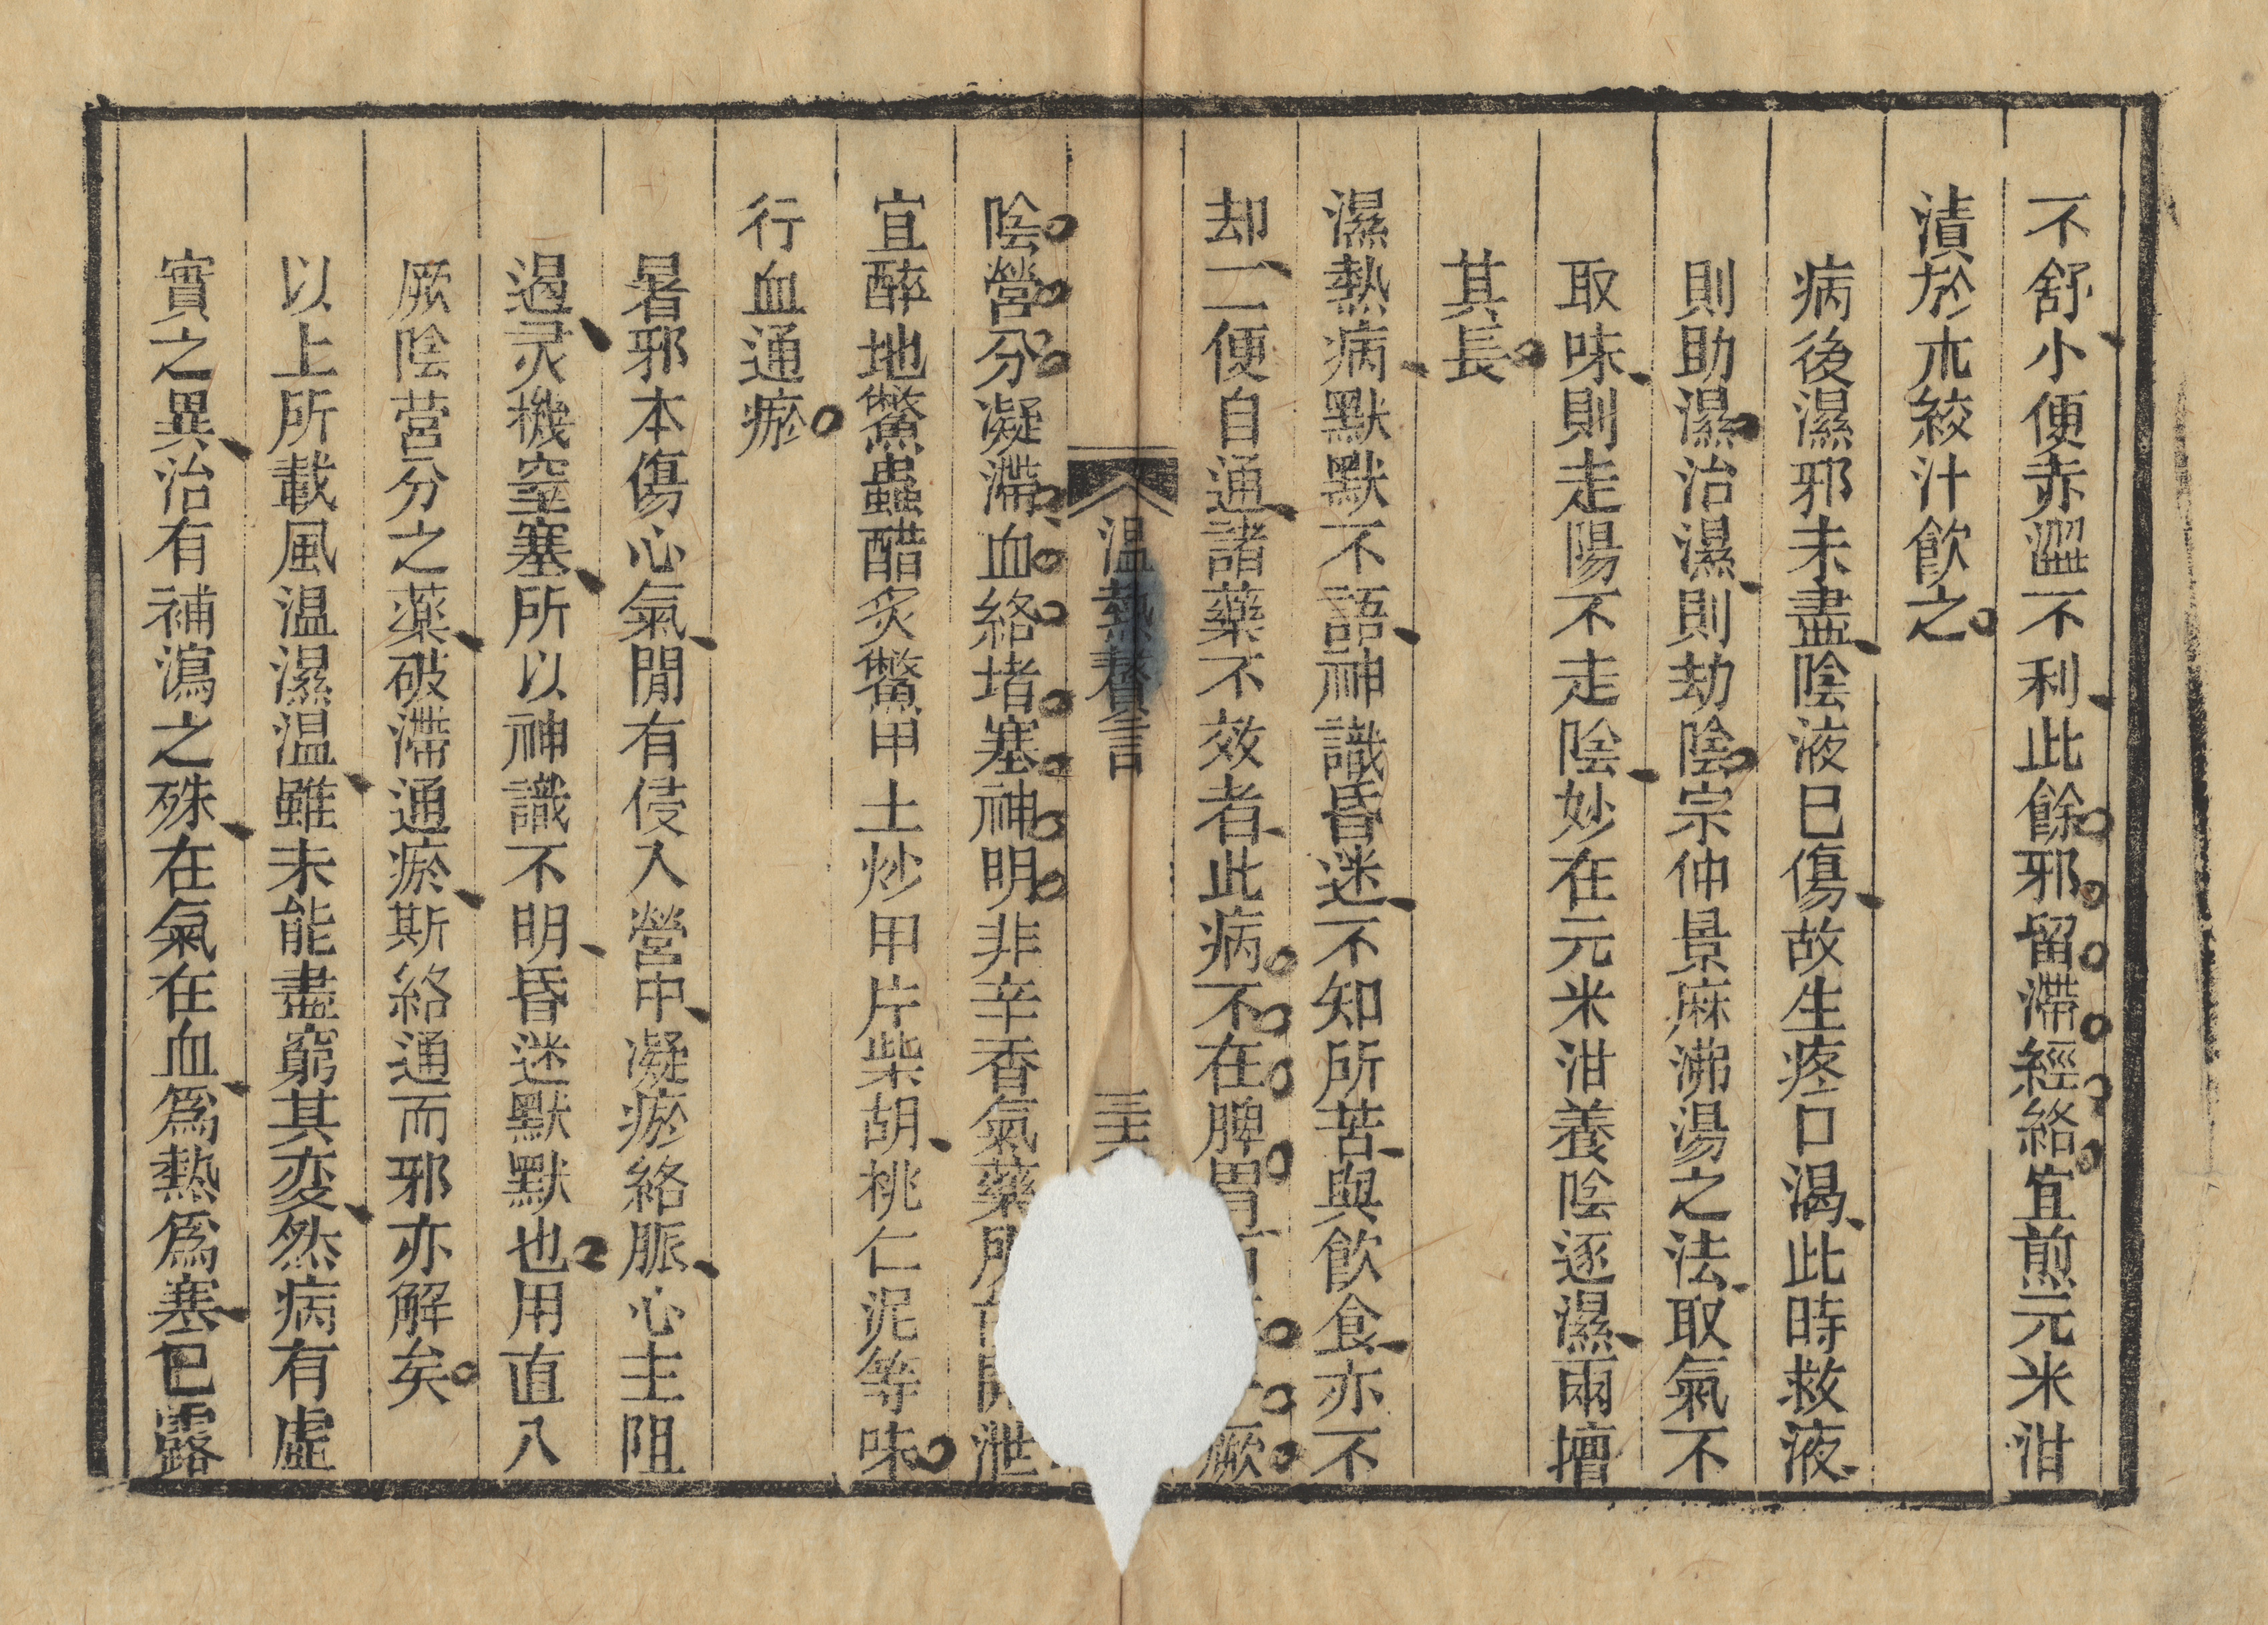 不舒小便赤澀不利此餘邪留滯經絡宜煎元米泔
漬於朮絞汁飲之
病後濕邪未盡陰液已傷故生疼口渴此時救液
則助濕治濕則劫陰宗仲景麻沸湯之法取氣不
取味則走陽不走陰妙在元米泔養陰逐濕兩擅
其長
濕熱病默默不語神識昏迷不知所苦與飲食亦不
却二便自通諸藥不效者此病不在脾胃厥
温熱贅言
陰營分凝滯血絡堵塞神明非辛香氣藥所開泄
宜醉地鱉蟲醋炙鱉甲土炒甲片柴胡桃仁泥等味
行血通瘀
暑邪本傷心氣閒有侵入營中凝瘀絡脈心主阻
遏灵機窒塞所以神識不明昏迷默默也用直入
厥陰营分之薬破滯通瘀斯絡通而邪亦解矣
以上所載風温濕温雖未能盡窮其变然病有虛
實之異治有補瀉之殊在氣在血爲熱爲塞已露